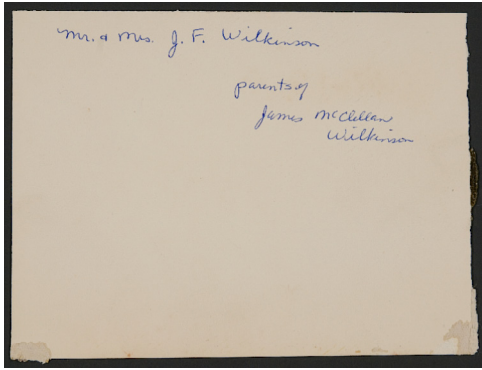 Mr. & Mrs. J. F. Wilkinson
parents of
James McClellan
Wilkinson